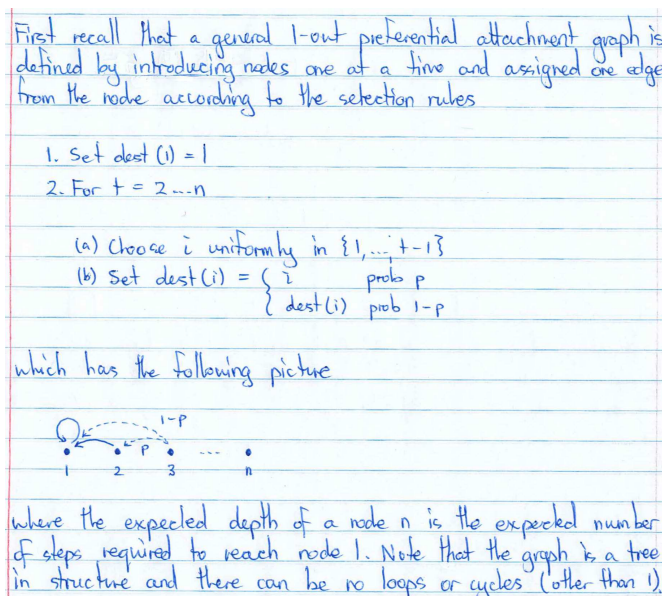 First recall that a general 1-out preferential attachment graph is
defined by introducing nodes one at a time and assigned one edge
from the node according to the selection rules
1. Set dest (1) = 1
2. For t = 2 ... n
(a) Choose i uniformly in {1, ..., t-1}
(b) Set dest (i) = { i prob p
{ dest (i) prob 1-p
which has the following picture
1-p
p ...
1 2 3 n
where the expected depth of a node n is the expected number
of steps required to reach node 1. Note that the graph is a tree
in structure and there can be no loops or cycles (other than 1)